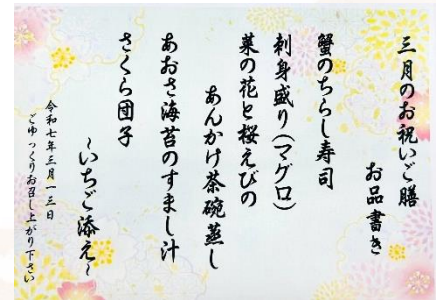 三月のお祝いご膳
お品書き
蟹のちらし寿司
刺身盛り(マグロ)
菜の花と桜えびの
あんかけ茶碗蒸し
あおさ海苔のすまし汁
さくら団子
~いちご添え~
令和七年三月一三日
ごゆっくりお召し上がり下さい